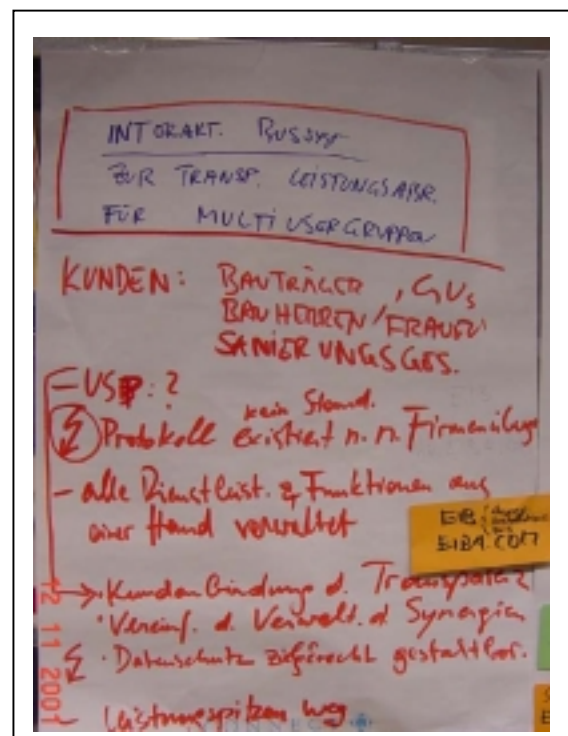 INTORAKT. BUSSYS
ZUR TRANSP. LEISTUNGSABR.
FÜR MULTIUSERGRUPPEN
KUNDEN: BAUTRÄGER, GUs
BAUHERREN/FRAUEN
SANIERUNGSGES.
- USP: ?
kein Stand.
Protokoll existiert n. n.
- alle Dienstleist. & Funktionen aus
einer Hand verwaltet
EIBA.COM
→ Kundenbindung d. Transparenz
· Vereinf. d. Verwalt. d. Synergien
· Datenschutz zielgerecht gestaltbar.
- Leistungspitzen weg
12 11 2001
CONNECT